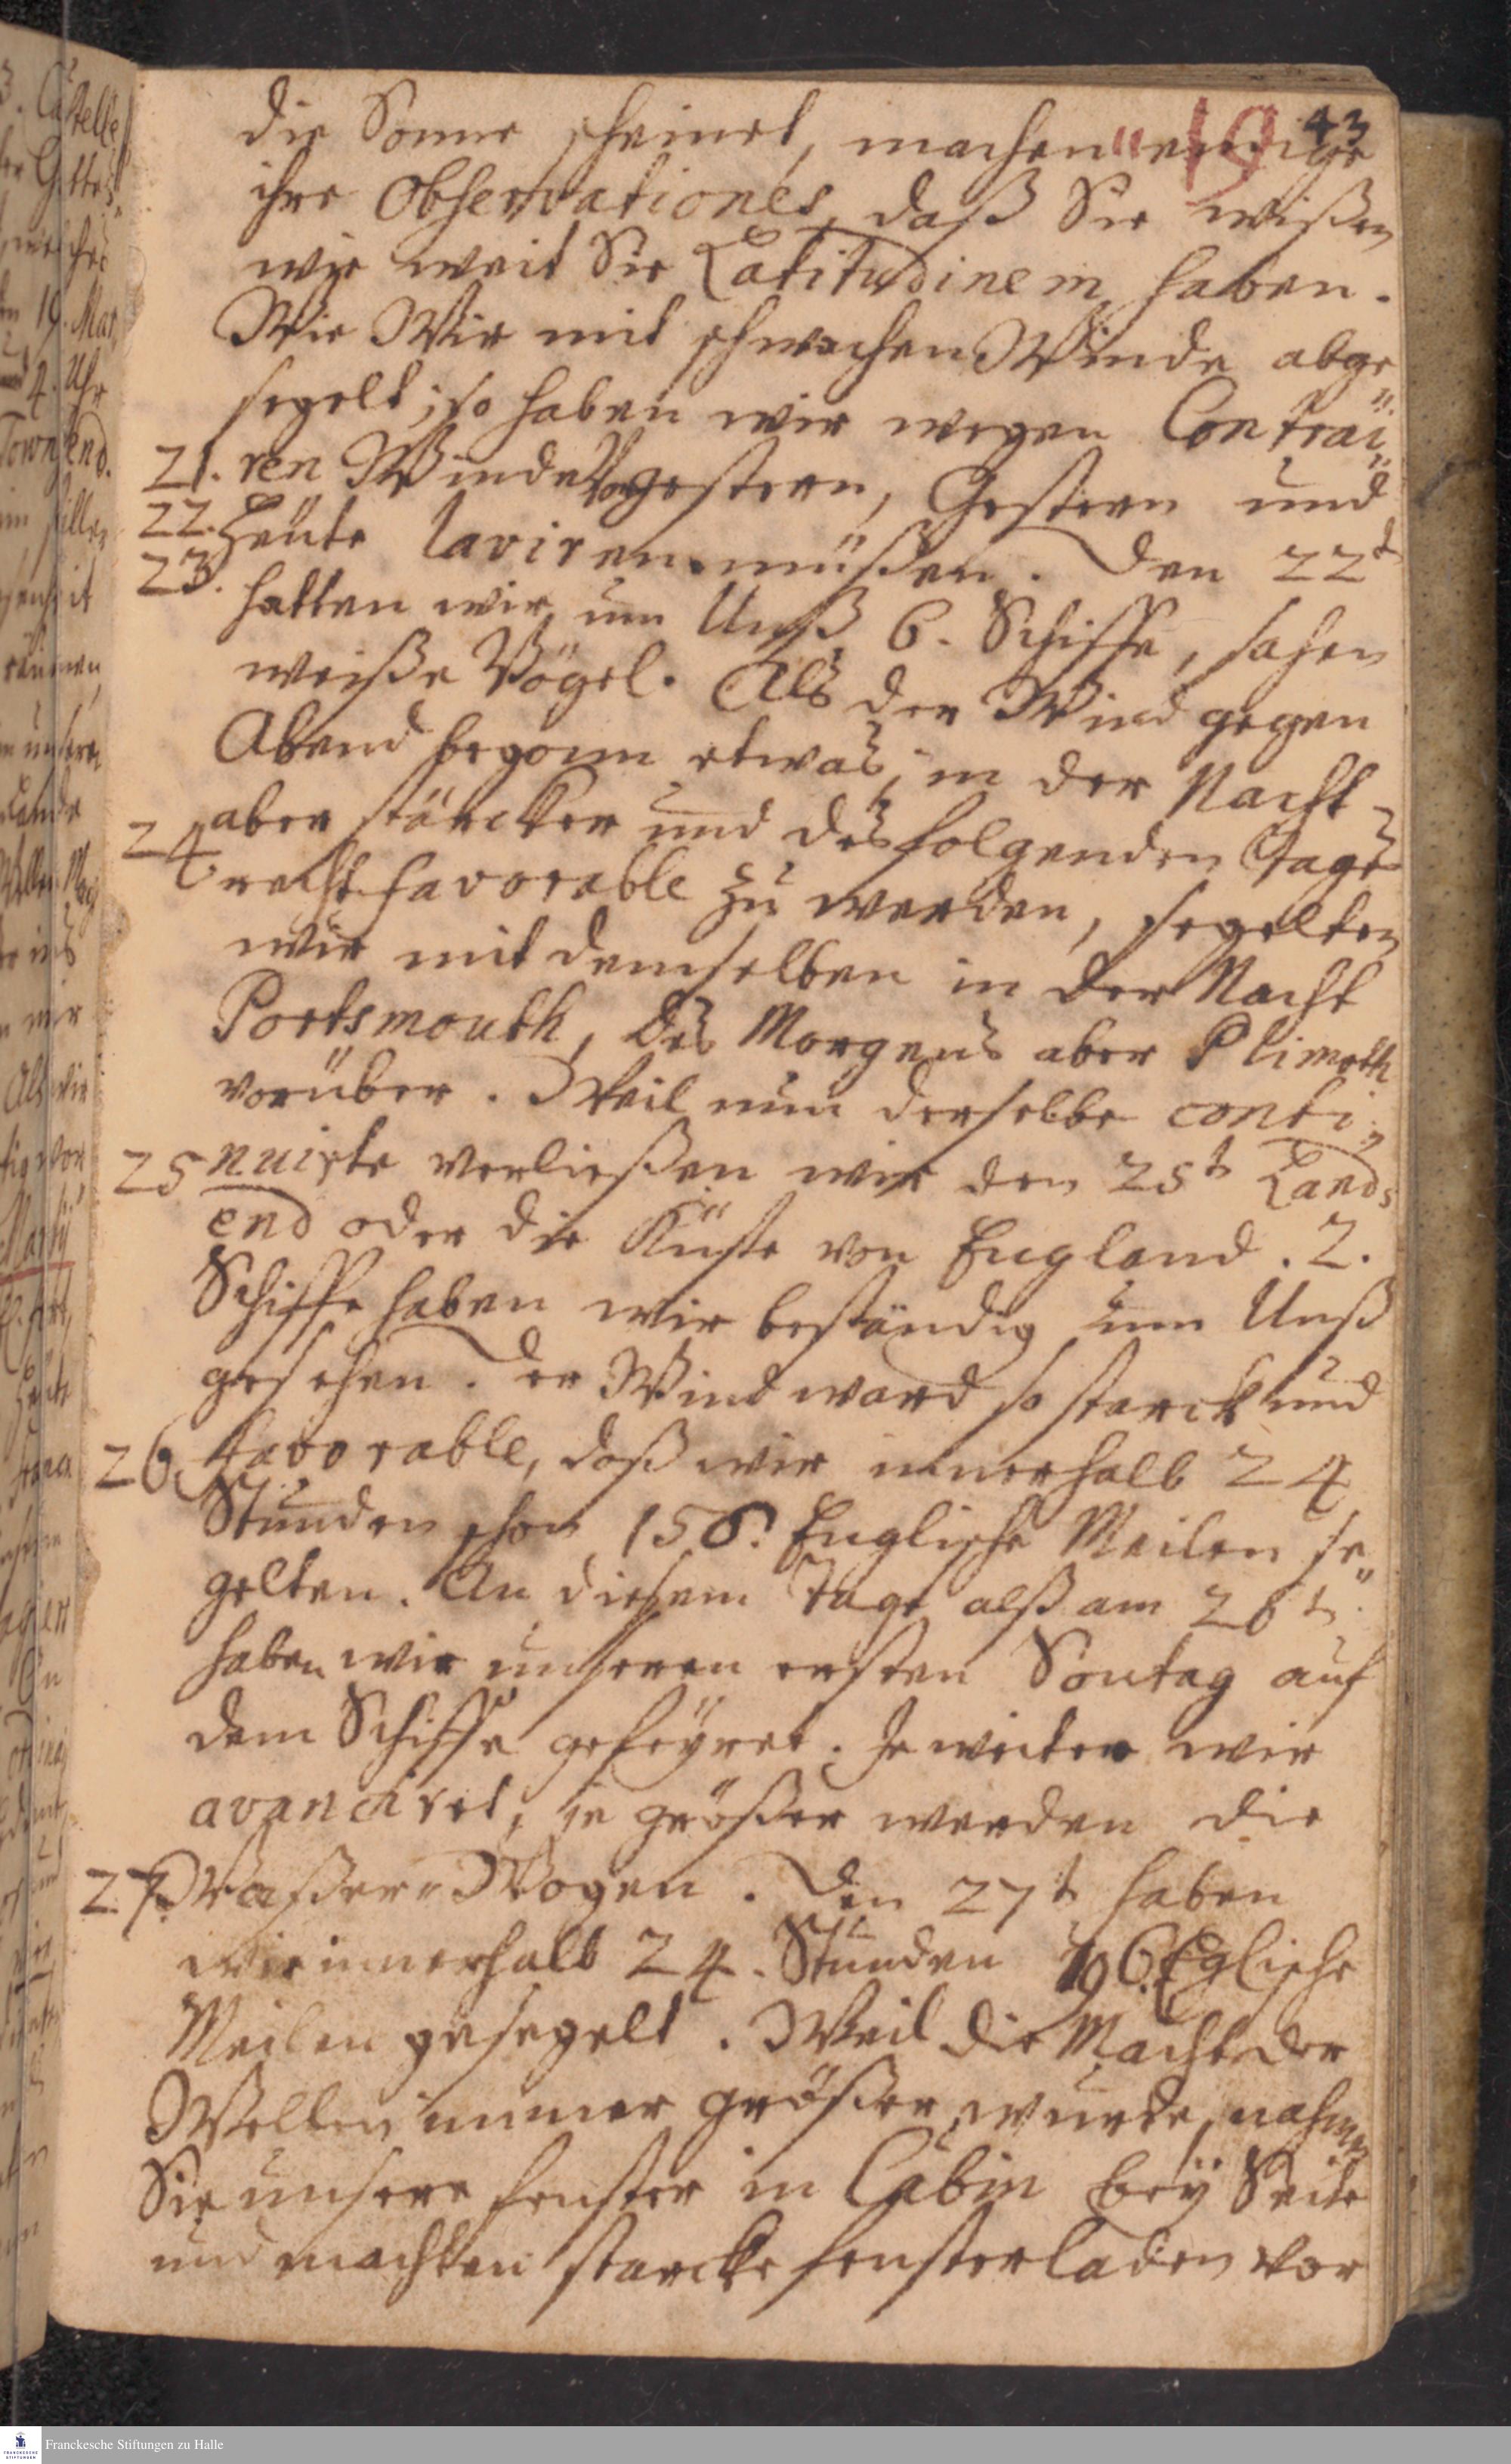 43
19
die Sonne scheinet, machen einige
ihre Observationes, daß Sie wißen
wie weit Sie Latitudinem haben.
Wie Wir mit schwachen Winde abge
segelt; so haben wir wegen Contrai„
21. ren Winde Vorgestern, Gestern und
22. Heute laviren müßen. Den 22t
23. hatten wir um Unß 6. Schiffe, sahen
weiße Vögel. Als der Wind gegen
Abend begonn etwas, in der Nacht
aber stärcker und des folgenden Tages
24 recht favorable zu werden, segelten
wir mit demselben in der Nacht
Portsmouth, des Morgens aber Plimoth
vorüber. Weil nun derselbe conti„
25 nuirte verließen wir den 25t Lands
end oder die Küste von England. 2.
Schiffe haben wir beständig um Unß
gesehen. Der Wind ward so starck und
26. favorable, daß wir innerhalb 24
Stunden schon 156. Englische Meilen se„
gelten. An diesem Tage alß am 26t
haben wir unseren ersten Sontag auf
dem Schiffe gefeyret. Je weiter wir
avanciret, je größer werden die
27. Waßer-Wogen. Den 27t haben
wir innerhalb 24. Stunden 196. Eglische
Meilen gesegelt. Weil die Macht der
Wellen immer größer wurde, nahmen
Sie unsere fenster in Cabin bey Seite
und machten starcke fensterladen vor
Franckesche Stiftungen zu Halle